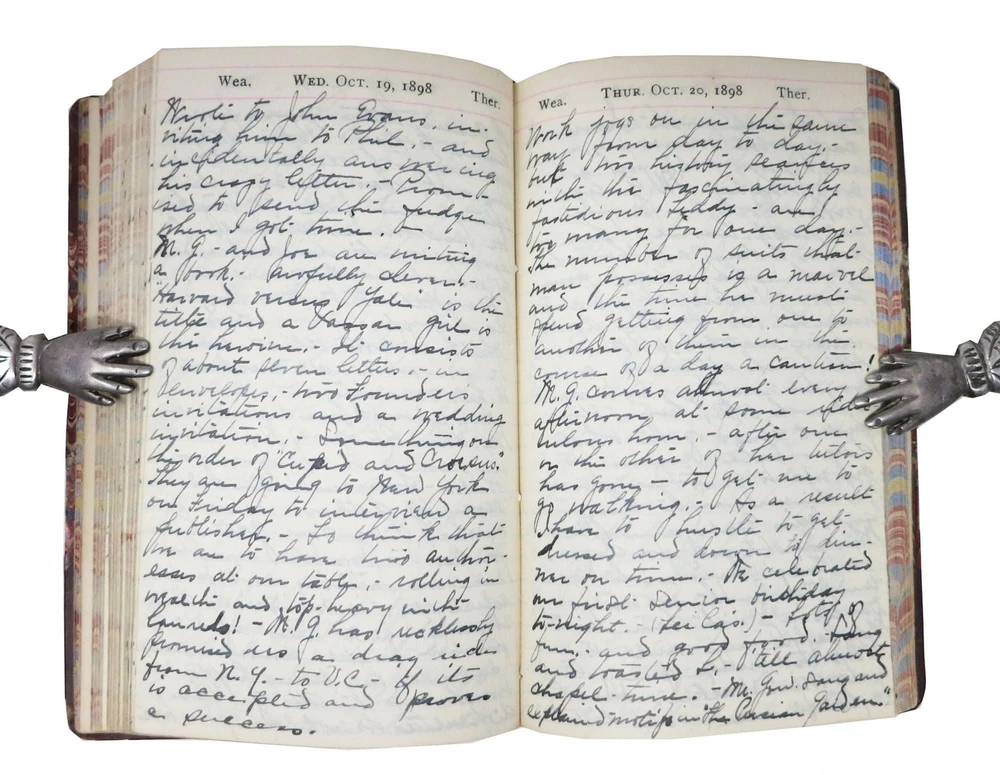 Wea. WED. OCT. 19, 1898 Ther.
Wrote to John Evans, in-
viting him to Phil. - and
incidentally answering
his crazy letter. - Prom-
ised to send the fudge
when I got time. -
M. G. - and Joe are writing
a book. - Awfully clever. -
"Harvard versus Yale" is the
title and a Vassar girl is
the heroine. - It consists
of about seven letters, - in
envelopes, - two Founders
invitations and a wedding
invitation. - Something on
the order of "Cupid and Croesus."
They are going to New York
on Friday to interview a
publisher. - To think that
we are to have two author-
esses at our table, - rolling in
wealth and top-heavy with
laurels! - M. G. has recklessly
promised us a drag ride
from N. Y. - to V. C. - if its
is accepted and proves
a success.
Wea. THUR. OCT. 20, 1898 Ther.
Work jogs on in the same
way from day to day, -
but two history
with the fascinatingly
fastidious Teddy - are
too many for one day. -
The number of suits that
man possesses is a marvel
and the time he must
spend getting from one to
another of them in the
course of a day a caution!
M. G. comes almost every
afternoon at some
hour, - after one
or the other of her tutors
has gone, - to get me to
go walking, - As a result
I have to hustle to get
dressed and down to din-
ner on time. - We celebrated
our first Senior birthday
to-night. - (Lee Cas.) - Lots of
fun, - and good food. Sang
and toasted L. - till almost
chapel-time. - M. Gow. sang and
explained motifs in "the Persian Garden."